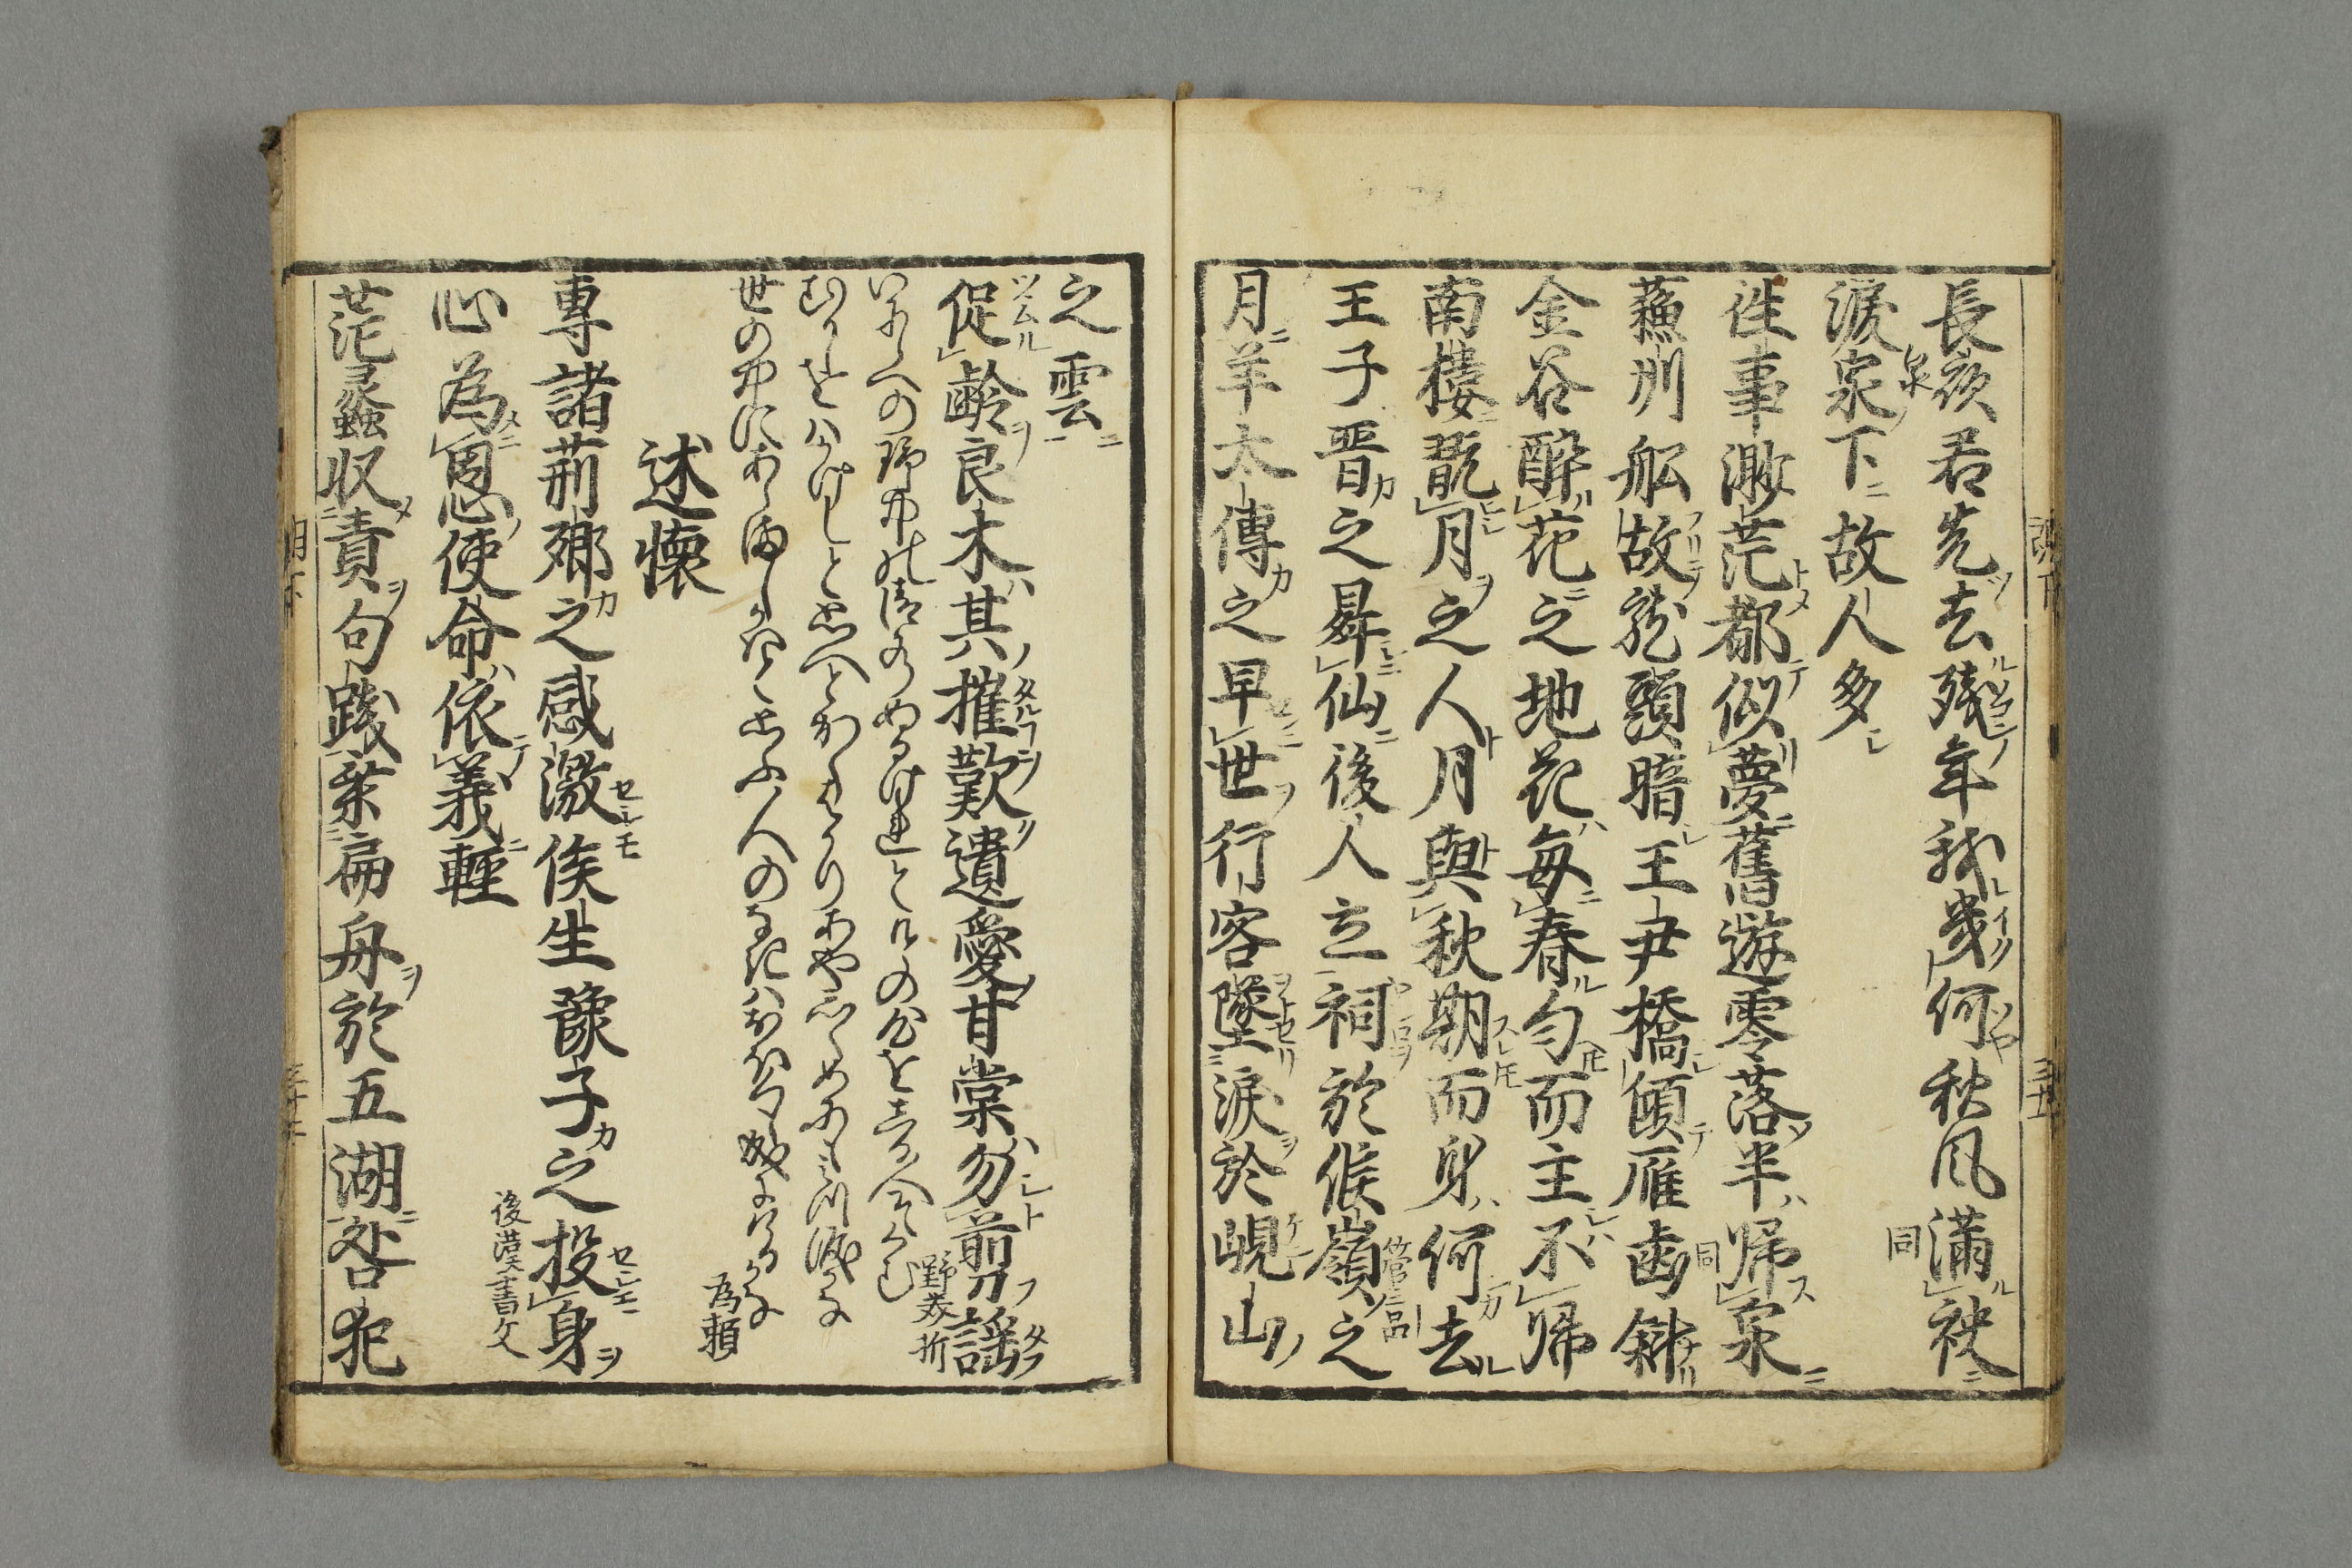 長夜君先去残年我幾何秋風満袂
涙泉下故人多 同
往事渺茫都似夢舊遊零落半帰泉
蘇州舩故龍頭暗王尹橋傾雁齒斜 同
金谷醉花之地花毎春匂而主不帰
南樓翫月之人月與秋期而身何去 管三品
王子晋之昇仙後人立祠於緱嶺之
月羊太傅之早世行客墜涙於峴山
之雲
促齢良木其摧歎遺愛甘棠勿剪謡 野美材
いにしへの野中の清水ぬるけれともとの心を
世の中にあらましかはとおもふ人のなきはおほくも成にけるかな 為頼
述懐
專諸荊卿之感激侯生豫子之投身
心為恩使命依義軽 後漢書文
范蠡収責句踐乗扁舟於五湖咎犯